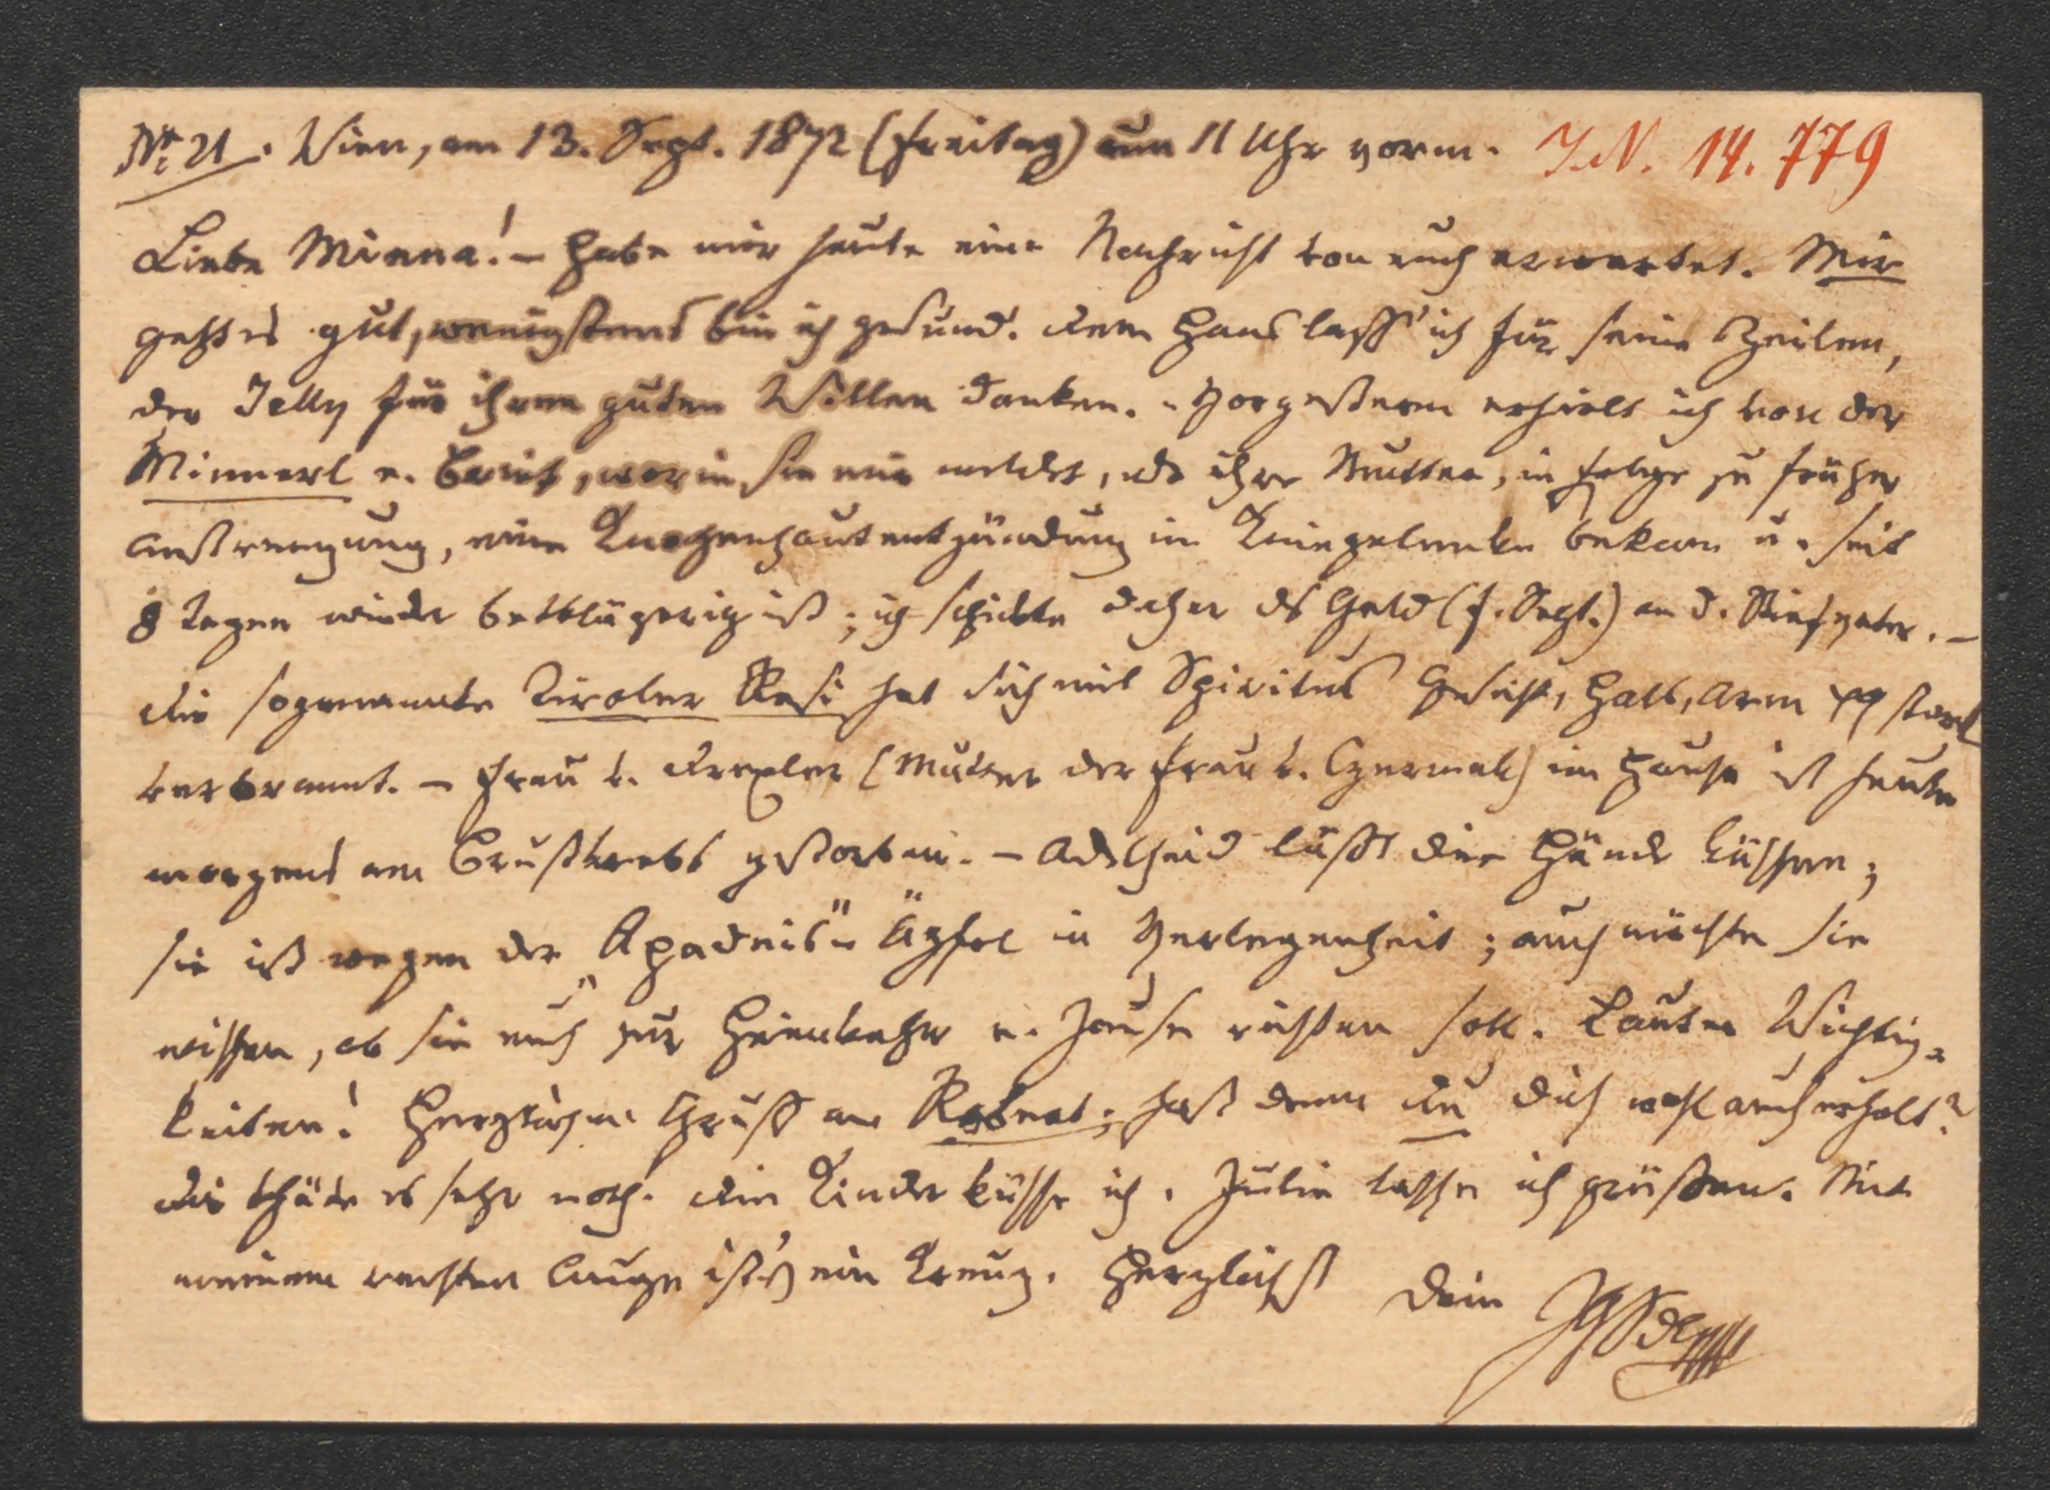 Nr. 21. Wien, am 13. Sept. 1872 (Freitag) um 11 Uhr vorm. I.N. 14.779
Liebe Minna! – Habe mir heute eine Nachricht von euch erwartet. Mir
geht es gut, wenigstens bin ich gesund. Dem Hans lass' ich für seine Zeilen,
der Jelly für ihren guten Willen danken. – Vorgestern erhielt ich von der
Minnerl e. Brief, worin sie mir meldet, dß ihre Mutter, in Folge zu früher
Anstrengung, eine Knochenhautentzündung im Kniegelenke bekam u. seit
8 Tagen wieder bettlägerig ist; ich schickte daher ds Geld (f. Sept.) an d. Stiefvater. –
Die sogenannte Tiroler Resi hat sich mit Spiritus Gesicht, Hals, Arm pp stark
verbrannt. – Frau v. Drexler (Mutter der Frau v. Czermak) im Hause ist heute
morgens am Brustkrebs gestorben. – Adelheid lässt dir die Hände küssen;
sie ist wegen der „Apadnis"-Äpfel in Verlegenheit; auch möchte sie
wissen, ob sie euch zur Heimkehr e. Jause richten soll. Lauter Wichtig-
keiten! Herzlichen Gruß an Robert; hast denn Du dich wohl auch erholt?
Dir thäte es sehr noth. Die Kinder küsse ich. Julie lasse ich grüßen. Mit
meinem rechten Auge ist's ein Kreuz. Herzlichst Dein